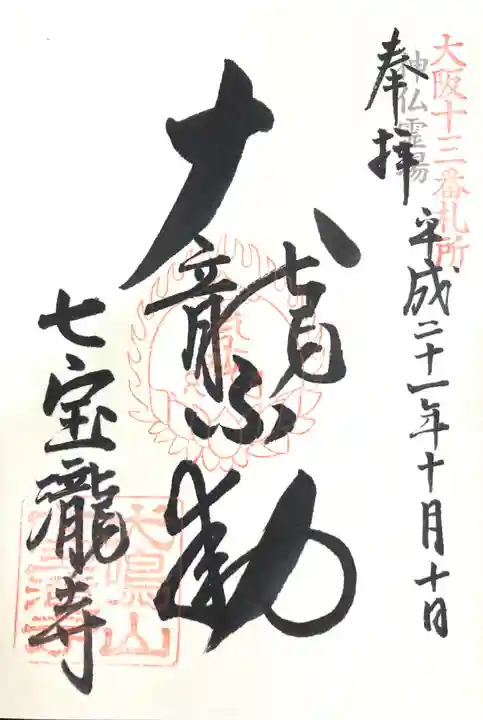 大阪十三番札所
神仏霊場
奉拝
平成二十一年十月十日
大龍不動
七宝瀧寺
犬鳴山
七宝瀧寺